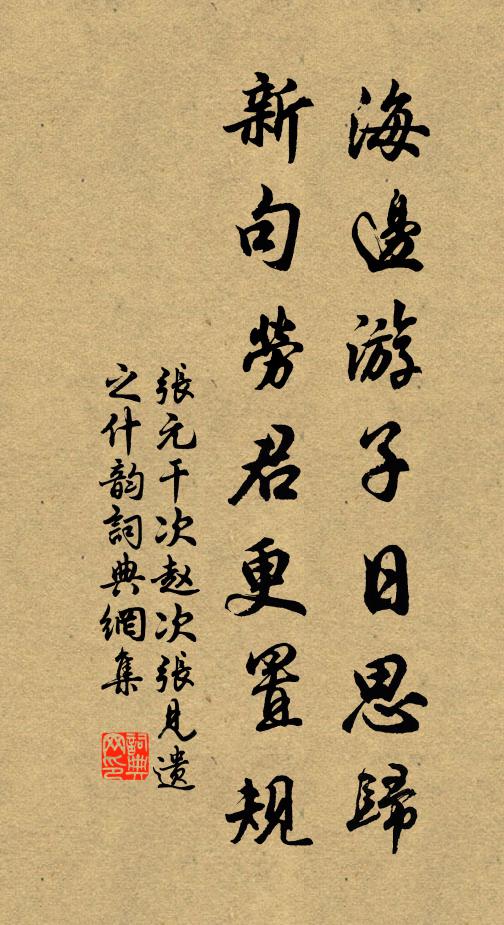 海邊游子日思歸
新句勞君更置規
張元干次赵次張見遗
之什韵詞典網集
詞典网印